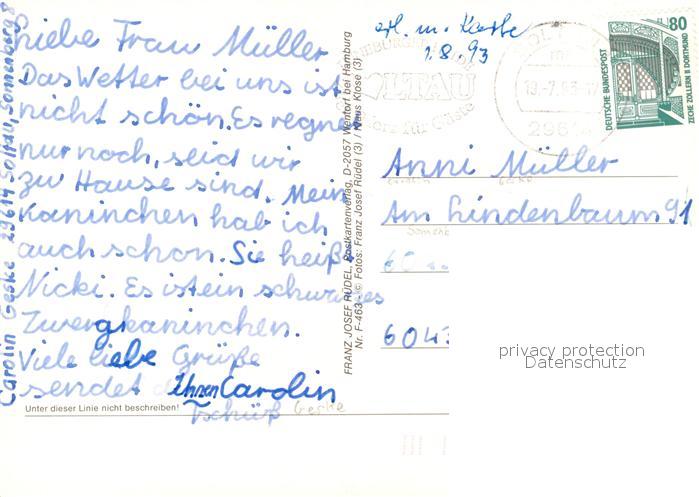 Liebe Frau Müller
Das Wetter bei uns ist
nicht schön. Es regnet
nur noch, seid wir
zu Hause sind. Mein
Kaninchen hab ich
auch schon. Sie heißt
Nicki. Es ist ein schwarzes
Zwergkaninchen.
Viele liebe Grüße
sendet Ihnen Carolin
Tschüß Geske
Unter dieser Linie nicht beschreiben!
Carolin Geske 29614 Soltau, Sonnenberg 8
FRANZ JOSEF RÜDEL, Postkartenverlag, D-2057 Wentorf bei Hamburg
Nr. F-463 © Fotos: Franz Josef Rüdel (3) / Klaus Klose (3)
m. Karte
1.8.93
SOLTAU
Herz für Gäste
19.-7.93-17
29614
80
DEUTSCHE BUNDESPOST
ZECHE ZOLLERN II DORTMUND
Anni Müller
Am Lindenbaum 91
60
6043
privacy protection
Datenschutz